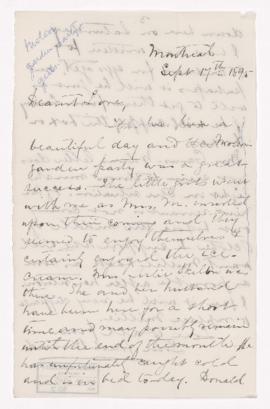 Molson
garden party
given
Montreal
Sept 17th 1895
Dearest Love,
It has been a
beautiful day and the Molson
garden party was a great
success. The little girls went
with me as Mrs. M. insisted
upon their coming and they
seemed to enjoy themselves &
certainly enjoyed the ice-
cream. Mrs
there. She and her husband
have been here for a short
time and may possibly remain
until the end of the month. He
has unfortunately caught cold
and is in bed today. Donald